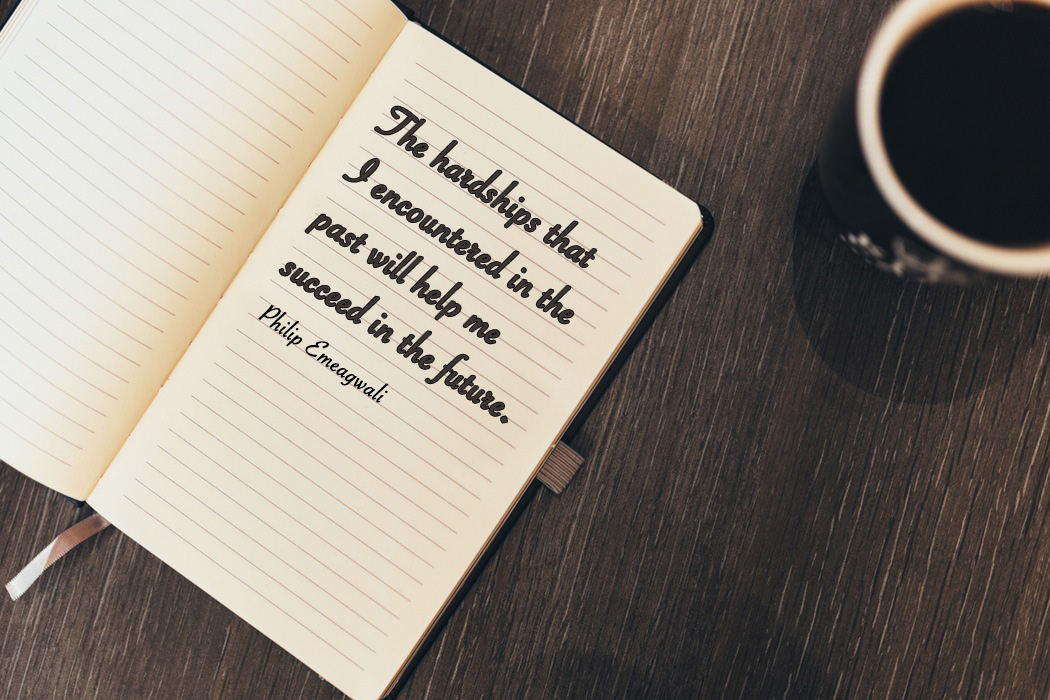 The hardships that
I encountered in the
past will help me
succeed in the future.
Philip Emeagwali